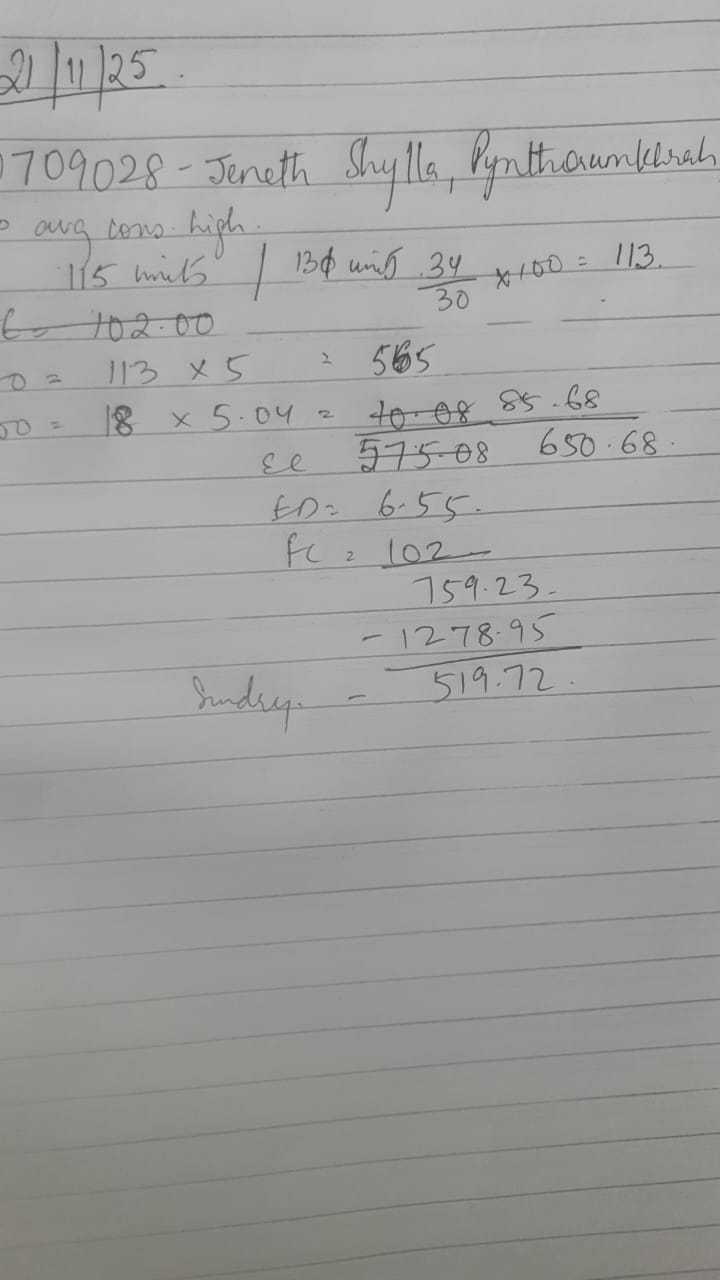 21/11/25.
0709028 - Jeneth Shylla, Pynthorumkhrah
avg cons. high.
115 units / 130 units 34/30 x 100 = 113.
102.00
0 = 113 x 5 = 565
00 = 18 x 5.04 = 10.08 85.68
EC 575.08 650.68.
ED = 6.55.
FC = 102
759.23
- 1278.95
Sundry. - 519.72.